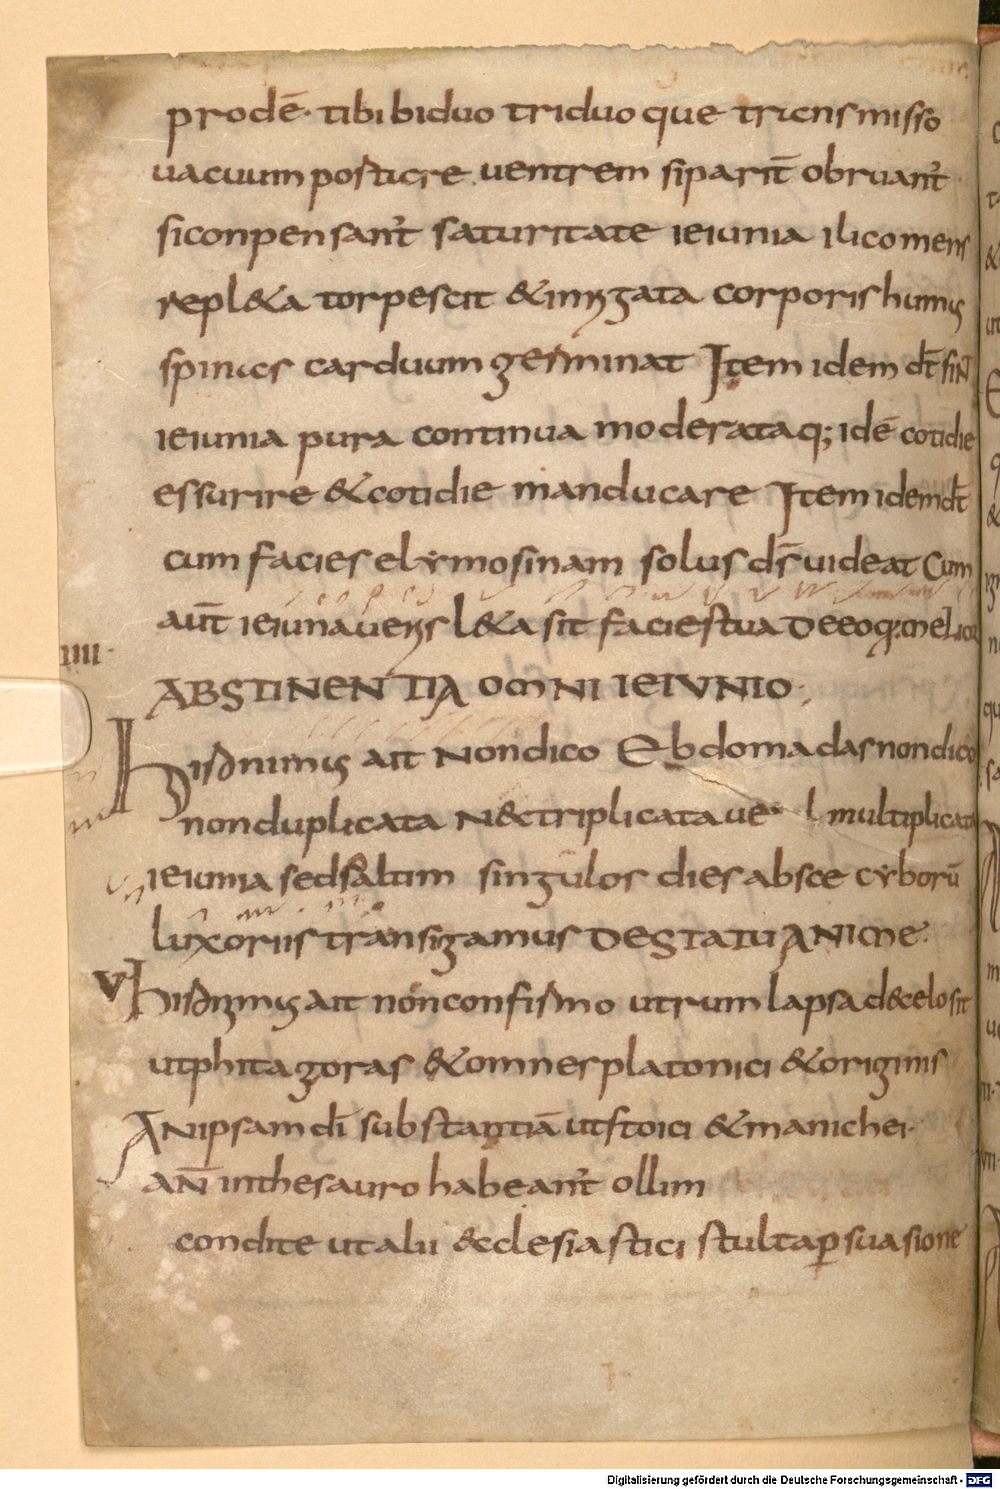 prodē· tibi biduo triduoque triensmisso
vacuum posticre ventrem si parit̄ obruant̄
si conpensant̄ saturitate ieiunia ilico mens
repl&a torpescit & inrigata corporis humus
spinas carduum germinat Item idem dt̄ sin̄
ieiunia pura continua moderataq; idē cotidie
essurire & cotidie manducare Item idem dt̄
cum facies elymosinam solus ds̄ uideat Cum
aut̄ ieiunaueris l&a sit facies tua DE EOQ:
IIII·
ABSTINENTIA OMNI IEIVNIO·,
hisdnimus ait Non dico Ebdomadas non dico
non duplicata N&triplicata ve l multiplicata
ieiunia sed saltim singulos dies absce cyborū
luxoriis transigamus DE STATU ANIME·
V hisdnimus ait non confismo utrum lapsa de celo sit
ut phitagoras & omnes platonici & originis
AN ipsam dī substantiā ut stoici & manichei·
AN̄ in thesauro habeant̄ ollim
condite ut alii &clesiastici stulta p̱suasione
Digitalisierung gefördert durch die Deutsche Forschungsgemeinschaft - DFG